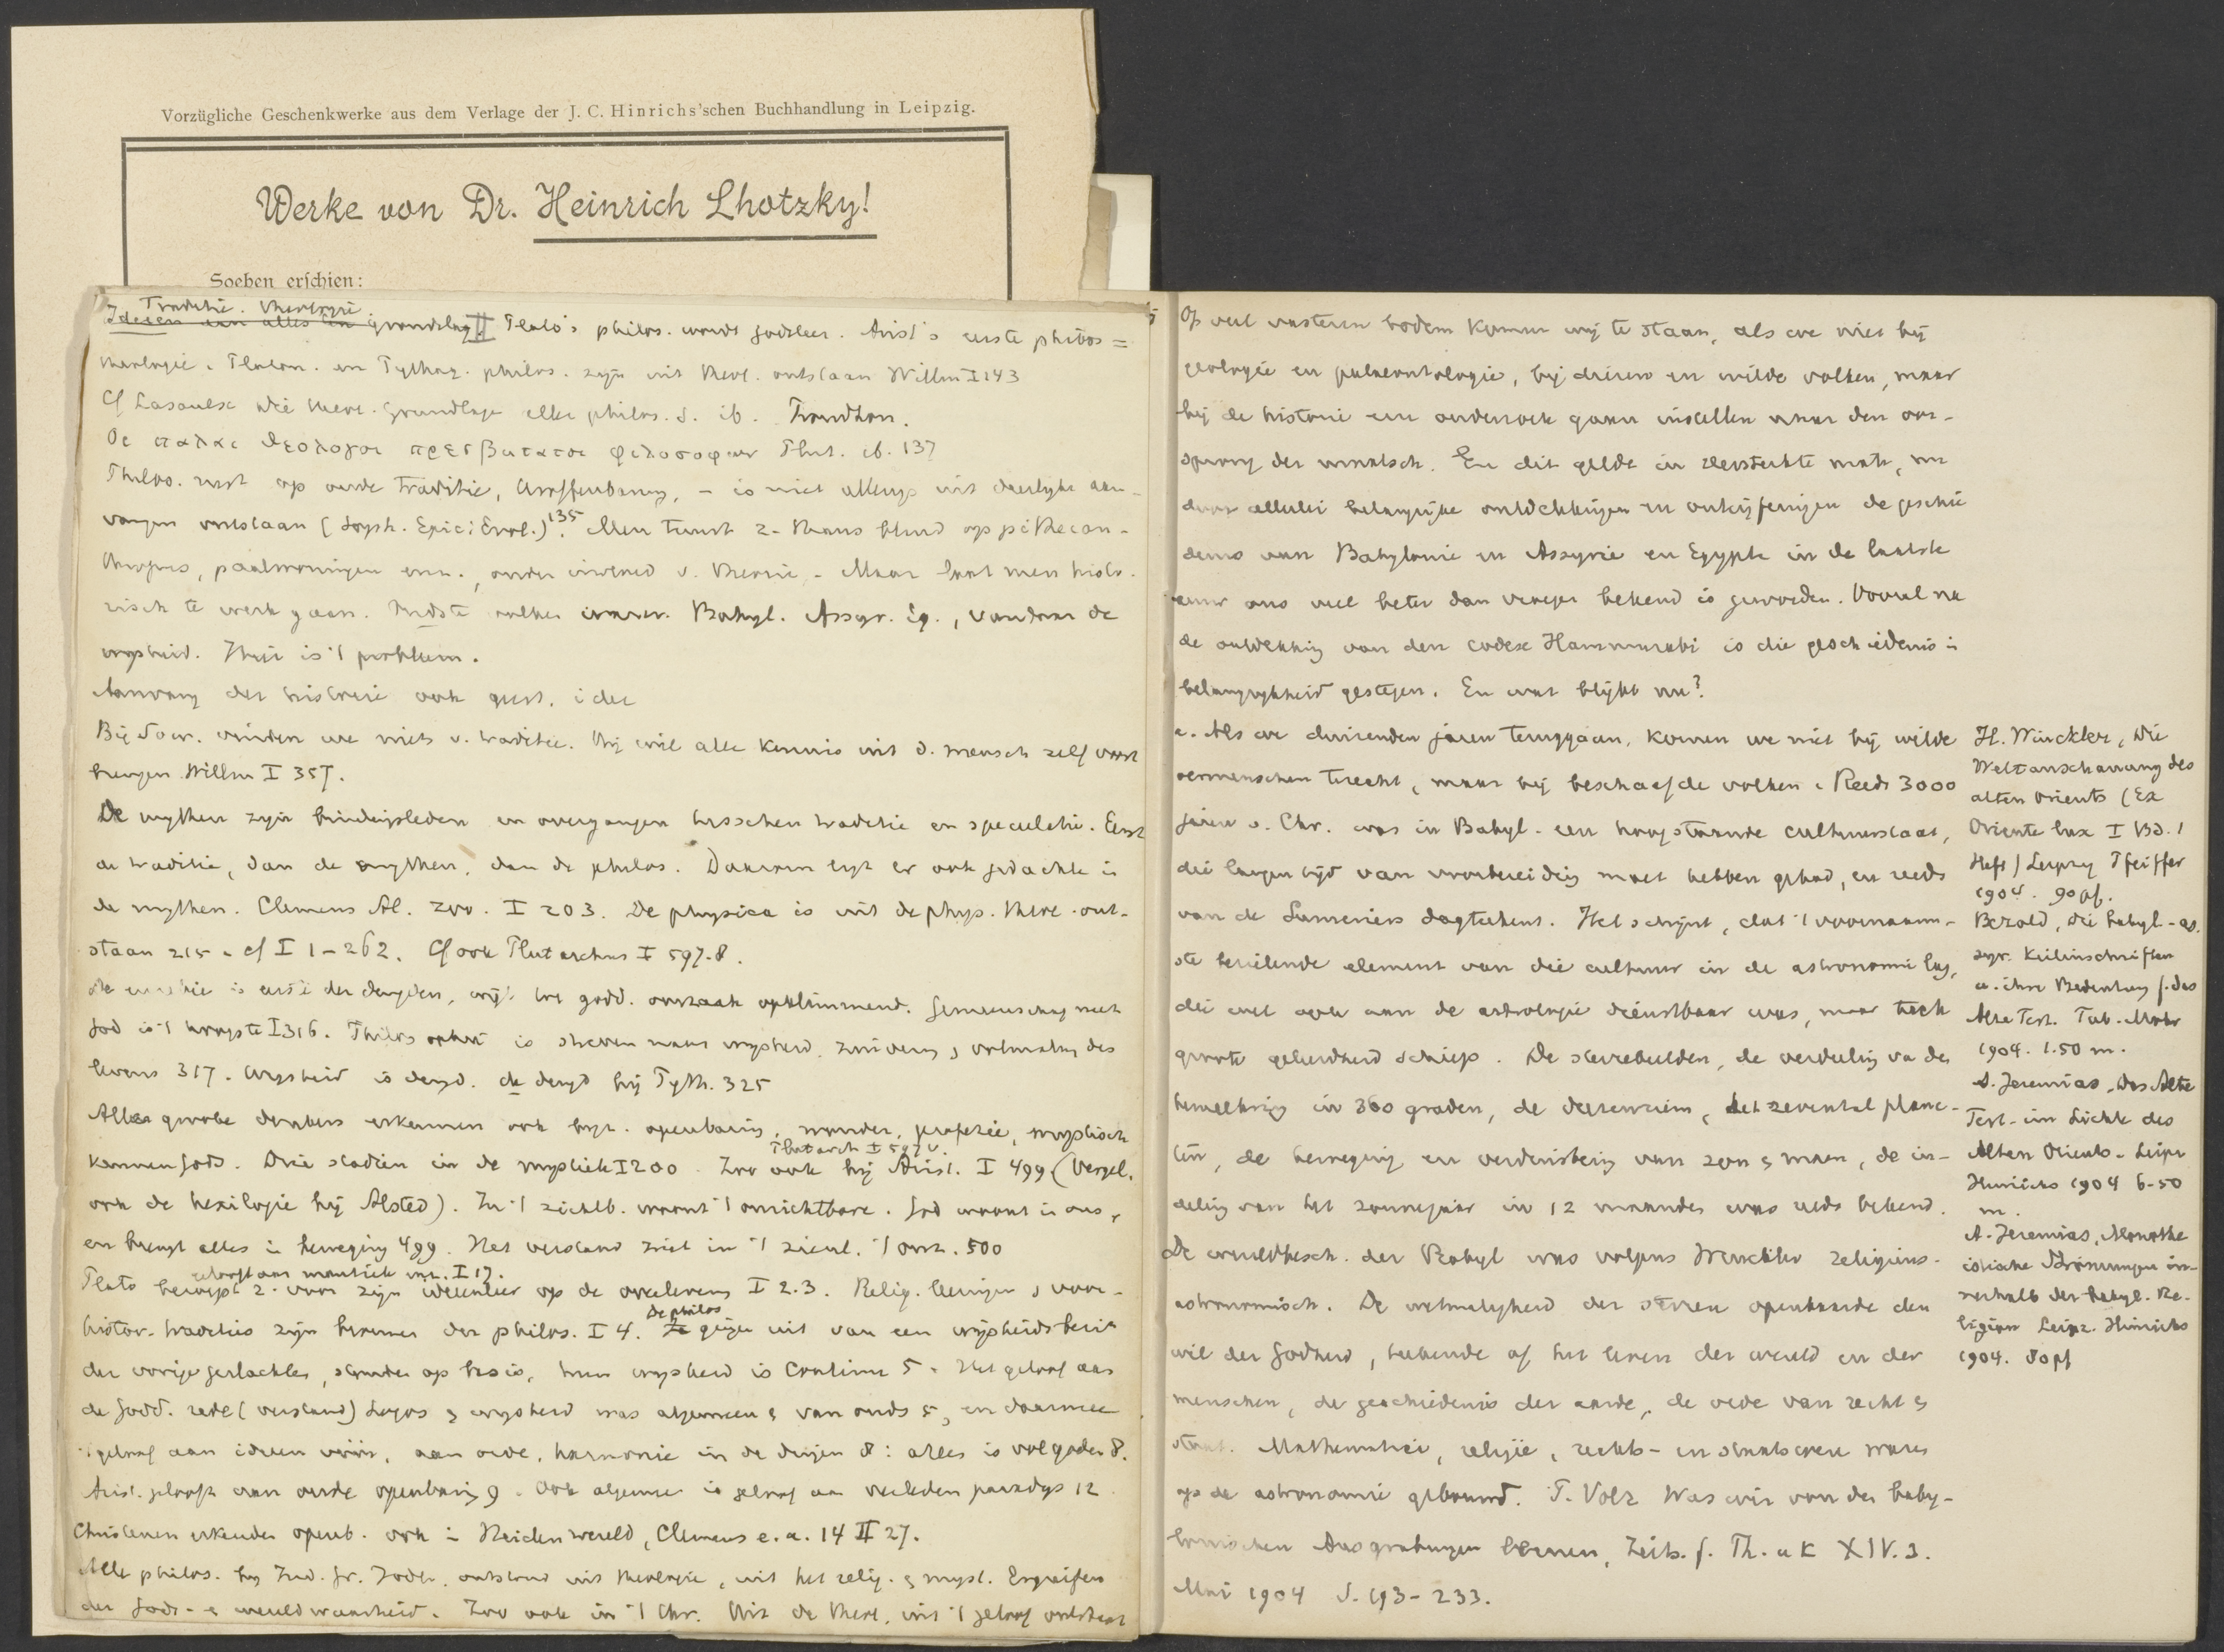 Vorzügliche Geschenkwerke aus dem Verlage der J. C. Hinrichs'schen Buchhandlung in Leipzig.
Werke von Dr. Heinrich Lhotzky!
Soeben erschien:
Traditie. Theologie
Ideeen van alles en grondslag II Plato's philos. wordt godsleer. Arist's eerste philos =
theologie. Platon. en Pythag. philos. zijn uit theol. ontstaan Willm I 143
Cf Lasaulx die theol. Grundlage aller philos. S. ib.
Οι παλαι θεολογοι πρεσβυτατοι φιλοσοφων Plut. ib. 137
Philos. rust op oude traditie, Uroffenbarung, - is niet allengs uit dierlijke aan-
vangen ontstaan (Soph. Epic: Evol.) 135. Men tuurt z. thans blind op pithecan-
thropus, paalwoningen enz., onder invloed v. theorie. - Maar laat men histo-
risch te werk gaan. Oudste volken waren Babyl. Assyr. Eg., vandaar de
wijsheid. Hier is 't probleem.
Aanvang der historie ook
Bij Socr. vinden we niets v. traditie. Hij wil alle kennis uit d. mensch zelf voort
brengen Willm I 357.
De mythen zijn bindingsleden en overgangen tusschen traditie en speculatie. Eerst
de traditie, dan de mythen, dan de philos. Daarom ligt er ook gedachte in
de mythen. Clemens Al. zoo. I 203. De physica is uit de phys. theol. ont-
staan 215. cf I 1-262. Cf ook Plutarchus I 597-8.
is eerste der deugden, wijl tot godd. oorzaak opklimmend. Gemeenschap met
God is 't hoogste I 316. Philos is streven naar wijsheid, zuivering, volmaking des
levens 317. Wijsheid is deugd. de deugd bij Pyth. 325
Alle groote denkers erkennen ook bijz. openbaring, wonder, profezie, mystisch
Plutarch I 597 v.
kennen Gods. Drie stadiën in de mystiek I 200. Zoo ook bij Arist. I 499 (Vergel.
ook de hexilogie bij Alsted). In 't zichtb. woont 't onzichtbare. God woont in ons,
en brengt alles in beweging 499. Het verstand ziet in 't zienl. 't onz. 500
gelooft aan mantiek enz. I 17.
Plato beroept z. voor zijn ideeënleer op de overlevering I 2.3. Relig. leeringen, voor-
histor. tradities zijn bronnen der philos. I 4. De philos gingen uit van een wijsheidsbezit
der vorige geslachten, stonden op basis, hun wijsheid is continu 5. Het geloof aan
de godd. rede (verstand) Logos & wijsheid was algemeen & van ouds 5, en daarmee
't geloof aan ideeën vóór, aan orde, harmonie in de dingen 8: alles is vol goden 8.
Arist. gelooft aan oude openbaring 9. Ook algemeen is geloof aan verleden paradijs 12.
Christenen erkenden openb. ook in Heidenwereld, Clemens e.a. 14 II 27.
Alle philos. bij Ind. Gr. Joden ontstond uit theologie, uit het relig. & myst. Ergreifen
der Gods- & wereldwaarheid. Zoo ook in 't Chr. Uit de theol., uit 't geloof ontstaat
Op veel vasteren bodem komen wij te staan, als we niet bij
geologie en palaeontologie, bij dieren en wilde volken, maar
bij de historie een onderzoek gaan instellen naar den oor-
sprong der menschh. En dit geldt in versterkte mate, nu
door allerlei belangrijke ontdekkingen en ontcijferingen de geschie
denis van Babylonie en Assyrie en Egypte in de laatste
eeuw ons veel beter dan vroeger bekend is geworden. Vooral na
de ontdekking van den codex Hammurabi is die geschiedenis in
belangrijkheid gestegen. En wat blijkt nu?
a. Als we duizenden jaren teruggaan, komen we niet bij wilde
oermenschen terecht, maar bij beschaafde volken. Reeds 3000
jaren v. Chr. was in Babyl. een hoogstaande cultuurstaat,
die langen tijd van voorbereiding moet hebben gehad, en reeds
van de Sumeriers dagteekent. Het schijnt, dat 't voornaam-
ste bezielende element van die cultuur in de astronomie lag,
die wel ook aan de astrologie dienstbaar was, maar toch
groote geleerdheid schiep. De sterrebeelden, de verdeeling va de
hemelkring in 360 graden, de dierenriem, het zevental plane-
ten, de beweging en verduistering van zon & maan, de in-
deeling van het zonnejaar in 12 maanden was reeds bekend.
De wereldbesch. der Babyl was volgens Winckler religieus-
astronomisch. De wetmatigheid der sterren openbaarde den
wil der Godheid, beheerde af het leven der wereld en der
menschen, de geschiedenis der aarde, de orde van recht &
staat. Mathematiek, religie, rechts- en staatswezen waren
op de astronomie gebouwd. P. Volz Was wir von den baby-
lonischen Ausgrabungen lernen, Zeits. f. Th. u K XIV. 3.
Mai 1904 S. 193-233.
H. Winckler, Die
Weltanschauung des
alten Orients (Ex
Oriente lux I Bd. 1
Heft) Leipzig Pfeiffer
1904. 90 pf.
Bezold, die babyl.-as.
syr. Keilinschriften
u. ihre Bedeutung f. das
Alte Test. Tüb. Mohr
1904. 1.50 m.
A. Jeremias, Das Alte
Test. im Lichte des
Alten Orients. Leipz
Hinrichs 1904 6-50
m.
A. Jeremias, Monothe
istische Strömungen in-
nerhalb der babyl. Re-
ligion Leipz. Hinrichs
1904. 80 pf